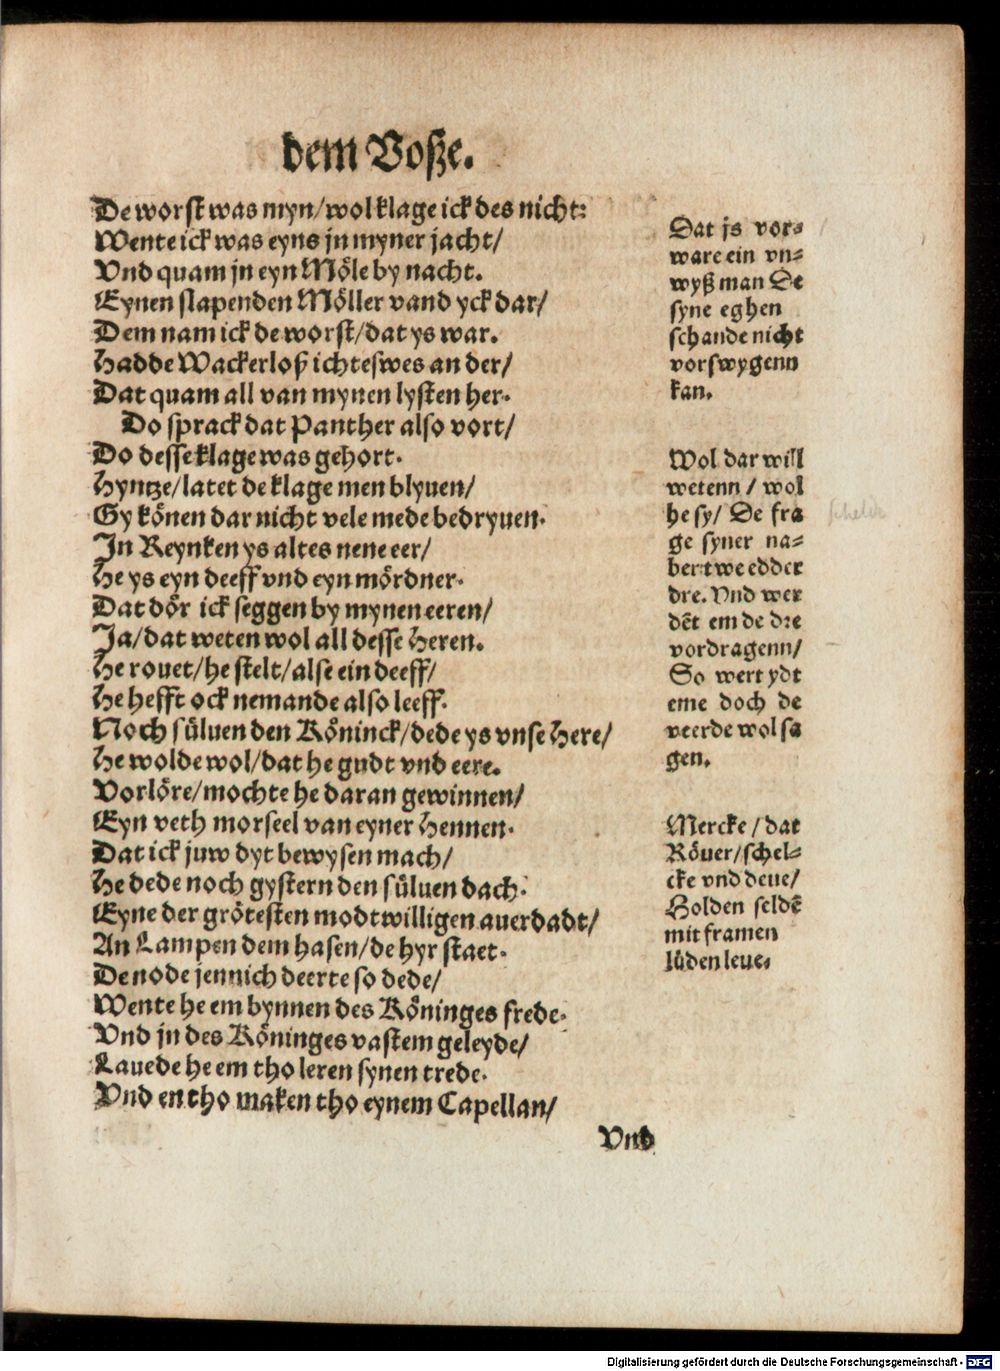 dem Voſze.
De worſt was myn/wol klage ick des nicht:
Wente ick was eyns jn myner jacht/
Vnd quam jn eyn Möle by nacht.
Eynen ſlapenden Möller vand yck dar/
Dem nam ick de worſt/dat ys war.
Hadde Wackerloß ichteſwes an der/
Dat quam all van mynen lyſten her.
Do ſprack dat Panther alſo vort/
Do deſſe klage was gehort.
Hyntze/latet de klage men blyuen/
Gy könen dar nicht vele mede bedryuen.
In Reynken ys altes nene eer/
He ys eyn deeff vnd eyn mördner.
Dat dör ick ſeggen by mynen eeren/
Ja/dat weten wol all deſſe Heren.
He rouet/he ſtelt/alſe ein deeff/
He hefft ock nemande alſo leeff.
Noch ſüluen den Köninck/dede ys vnſe Here/
He wolde wol/dat he gudt vnd eere.
Vorlöre/mochte he daran gewinnen/
Eyn veth morſeel van eyner Hennen.
Dat ick juw dyt bewyſen mach/
He dede noch gyſtern den ſüluen dach.
Eyne der gröteſten modtwilligen auerdadt/
An Lampen dem haſen/de hyr ſtaet.
De node jennich deerte ſo dede/
Wente he em bynnen des Köninges frede.
Vnd jn des Köninges vaſtem geleyde/
Lauede he em tho leren ſynen trede.
Vnd en tho maken tho eynem Capellan/
Vnd
Dat js vor⸗
ware ein vn⸗
wyß man De
ſyne eghen
ſchande nicht
vorſwygenn
kan.
Wol dar will
wetenn / wol
he ſy/ De fra
ge ſyner na⸗
ber twe edder
dre. Vnd wer
dēt em de dre
vordragenn/
So wert ydt
eme doch de
veerde wol ſa
gen.
Mercke /dat
Röuer/ſchel⸗
cke vnd deue/
Holden ſeldē
mit framen
lüden leue.
Digitalisierung gefördert durch die Deutsche Forschungsgemeinschaft - DFG